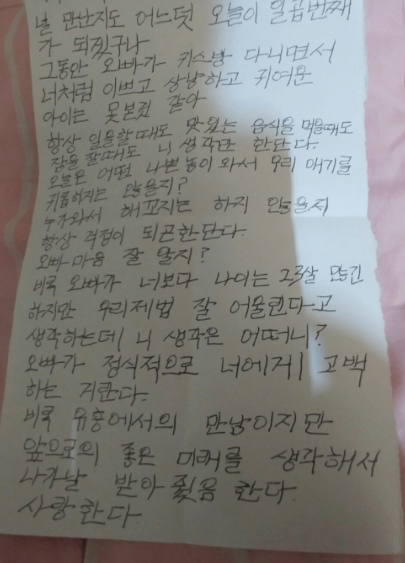 널 만난지도 어느덧 오늘이 일곱번째
가 되겠구나
그동안 오빠가 키스방 다니면서
너처럼 이쁘고 상냥하고 귀여운
아이는 못본것 같아
항상 일을할때도 맛있는 음식을 먹을때도
잠을 잘때도 니 생각만 한단다.
오늘은 어떤 나쁜놈이 와서 우리 애기를
괴롭히지는 않을지?
누가와서 해꼬지는 하지 않을지
항상 걱정이 되곤한단다.
오빠마음 잘 알지?
비록 오빠가 너보다 나이는 23살 많긴
하지만 우리제법 잘 어울린다고
생각하는데 니 생각은 어떠니?
오빠가 정식적으로 너에게 고백
하는 거란다.
비록 유흥에서의 만남이지만
앞으로의 좋은 미래를 생각해서
나가날 받아줬음 한다
사랑한다